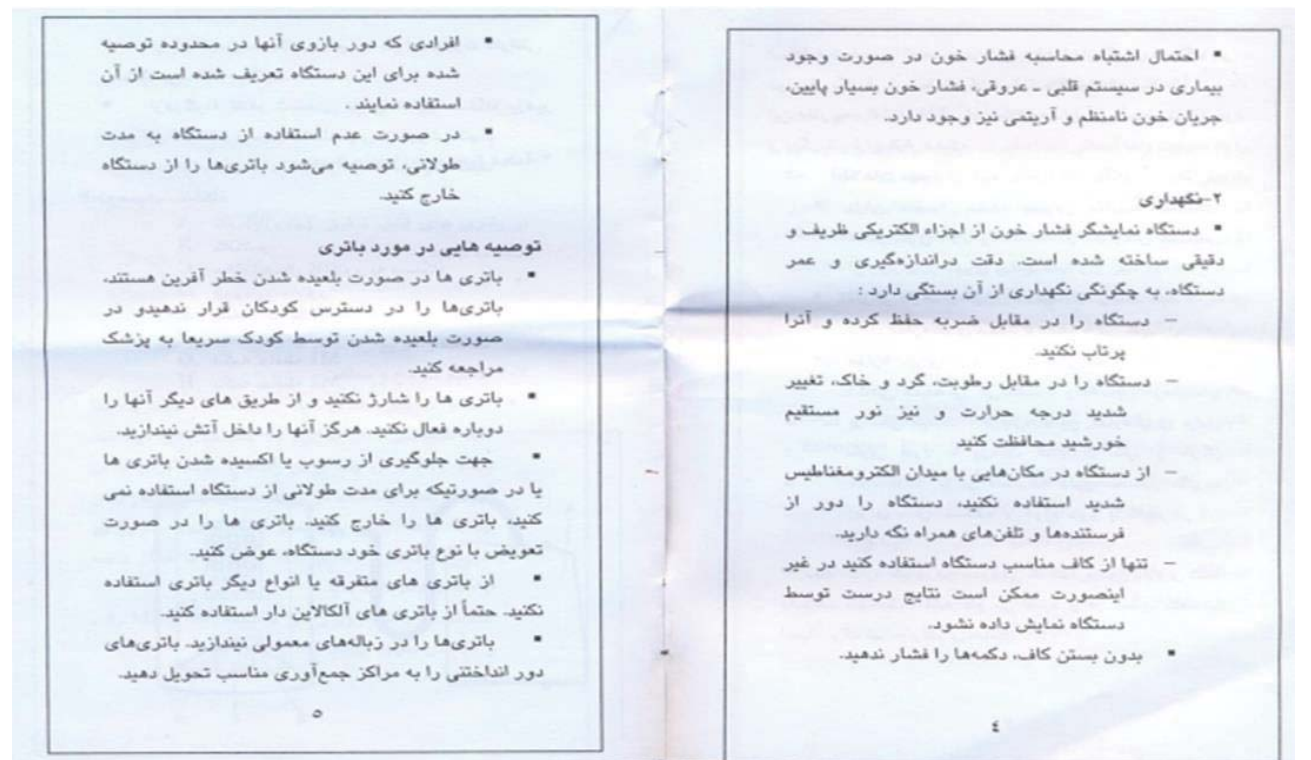 ▪ احتمال اشتباه محاسبه فشار خون در صورت وجود
بیماری در سیستم قلبی ـ عروقی، فشار خون بسیار پایین،
جریان خون نامنظم و آریتمی نیز وجود دارد.
۲-نگهداری
▪ دستگاه نمایشگر فشار خون از اجزاء الکتریکی ظریف و
دقیقی ساخته شده است. دقت دراندازه‌گیری و عمر
دستگاه، به چگونگی نگهداری از آن بستگی دارد :
– دستگاه را در مقابل ضربه حفظ کرده و آنرا
پرتاب نکنید.
– دستگاه را در مقابل رطوبت، گرد و خاک، تغییر
شدید درجه حرارت و نیز نور مستقیم
خورشید محافظت کنید
– از دستگاه در مکان‌هایی با میدان الکترومغناطیس
شدید استفاده نکنید. دستگاه را دور از
فرستنده‌ها و تلفن‌های همراه نگه دارید.
– تنها از کاف مناسب دستگاه استفاده کنید در غیر
اینصورت ممکن است نتایج درست توسط
دستگاه نمایش داده نشود.
▪ بدون بستن کاف، دکمه‌ها را فشار ندهید.
٤
▪ افرادی که دور بازوی آنها در محدوده توصیه
شده برای این دستگاه تعریف شده است از آن
استفاده نمایند .
▪ در صورت عدم استفاده از دستگاه به مدت
طولانی، توصیه می‌شود باتری‌ها را از دستگاه
خارج کنید.
توصیه هایی در مورد باتری
▪ باتری ها در صورت بلعیده شدن خطر آفرین هستند.
باتری‌ها را در دسترس کودکان قرار ندهیدو در
صورت بلعیده شدن توسط کودک سریعا به پزشک
مراجعه کنید.
▪ باتری ها را شارژ نکنید و از طریق های دیگر آنها را
دوباره فعال نکنید. هرگز آنها را داخل آتش نیندازید.
▪ جهت جلوگیری از رسوب یا اکسیده شدن باتری ها
یا در صورتیکه برای مدت طولانی از دستگاه استفاده نمی
کنید، باتری ها را خارج کنید. باتری ها را در صورت
تعویض با نوع باتری خود دستگاه، عوض کنید.
▪ از باتری های متفرقه یا انواع دیگر باتری استفاده
نکنید. حتماً از باتری های آلکالاین دار استفاده کنید.
▪ باتری‌ها را در زباله‌های معمولی نیندازید. باتری‌های
دور انداختنی را به مراکز جمع‌آوری مناسب تحویل دهید.
٥